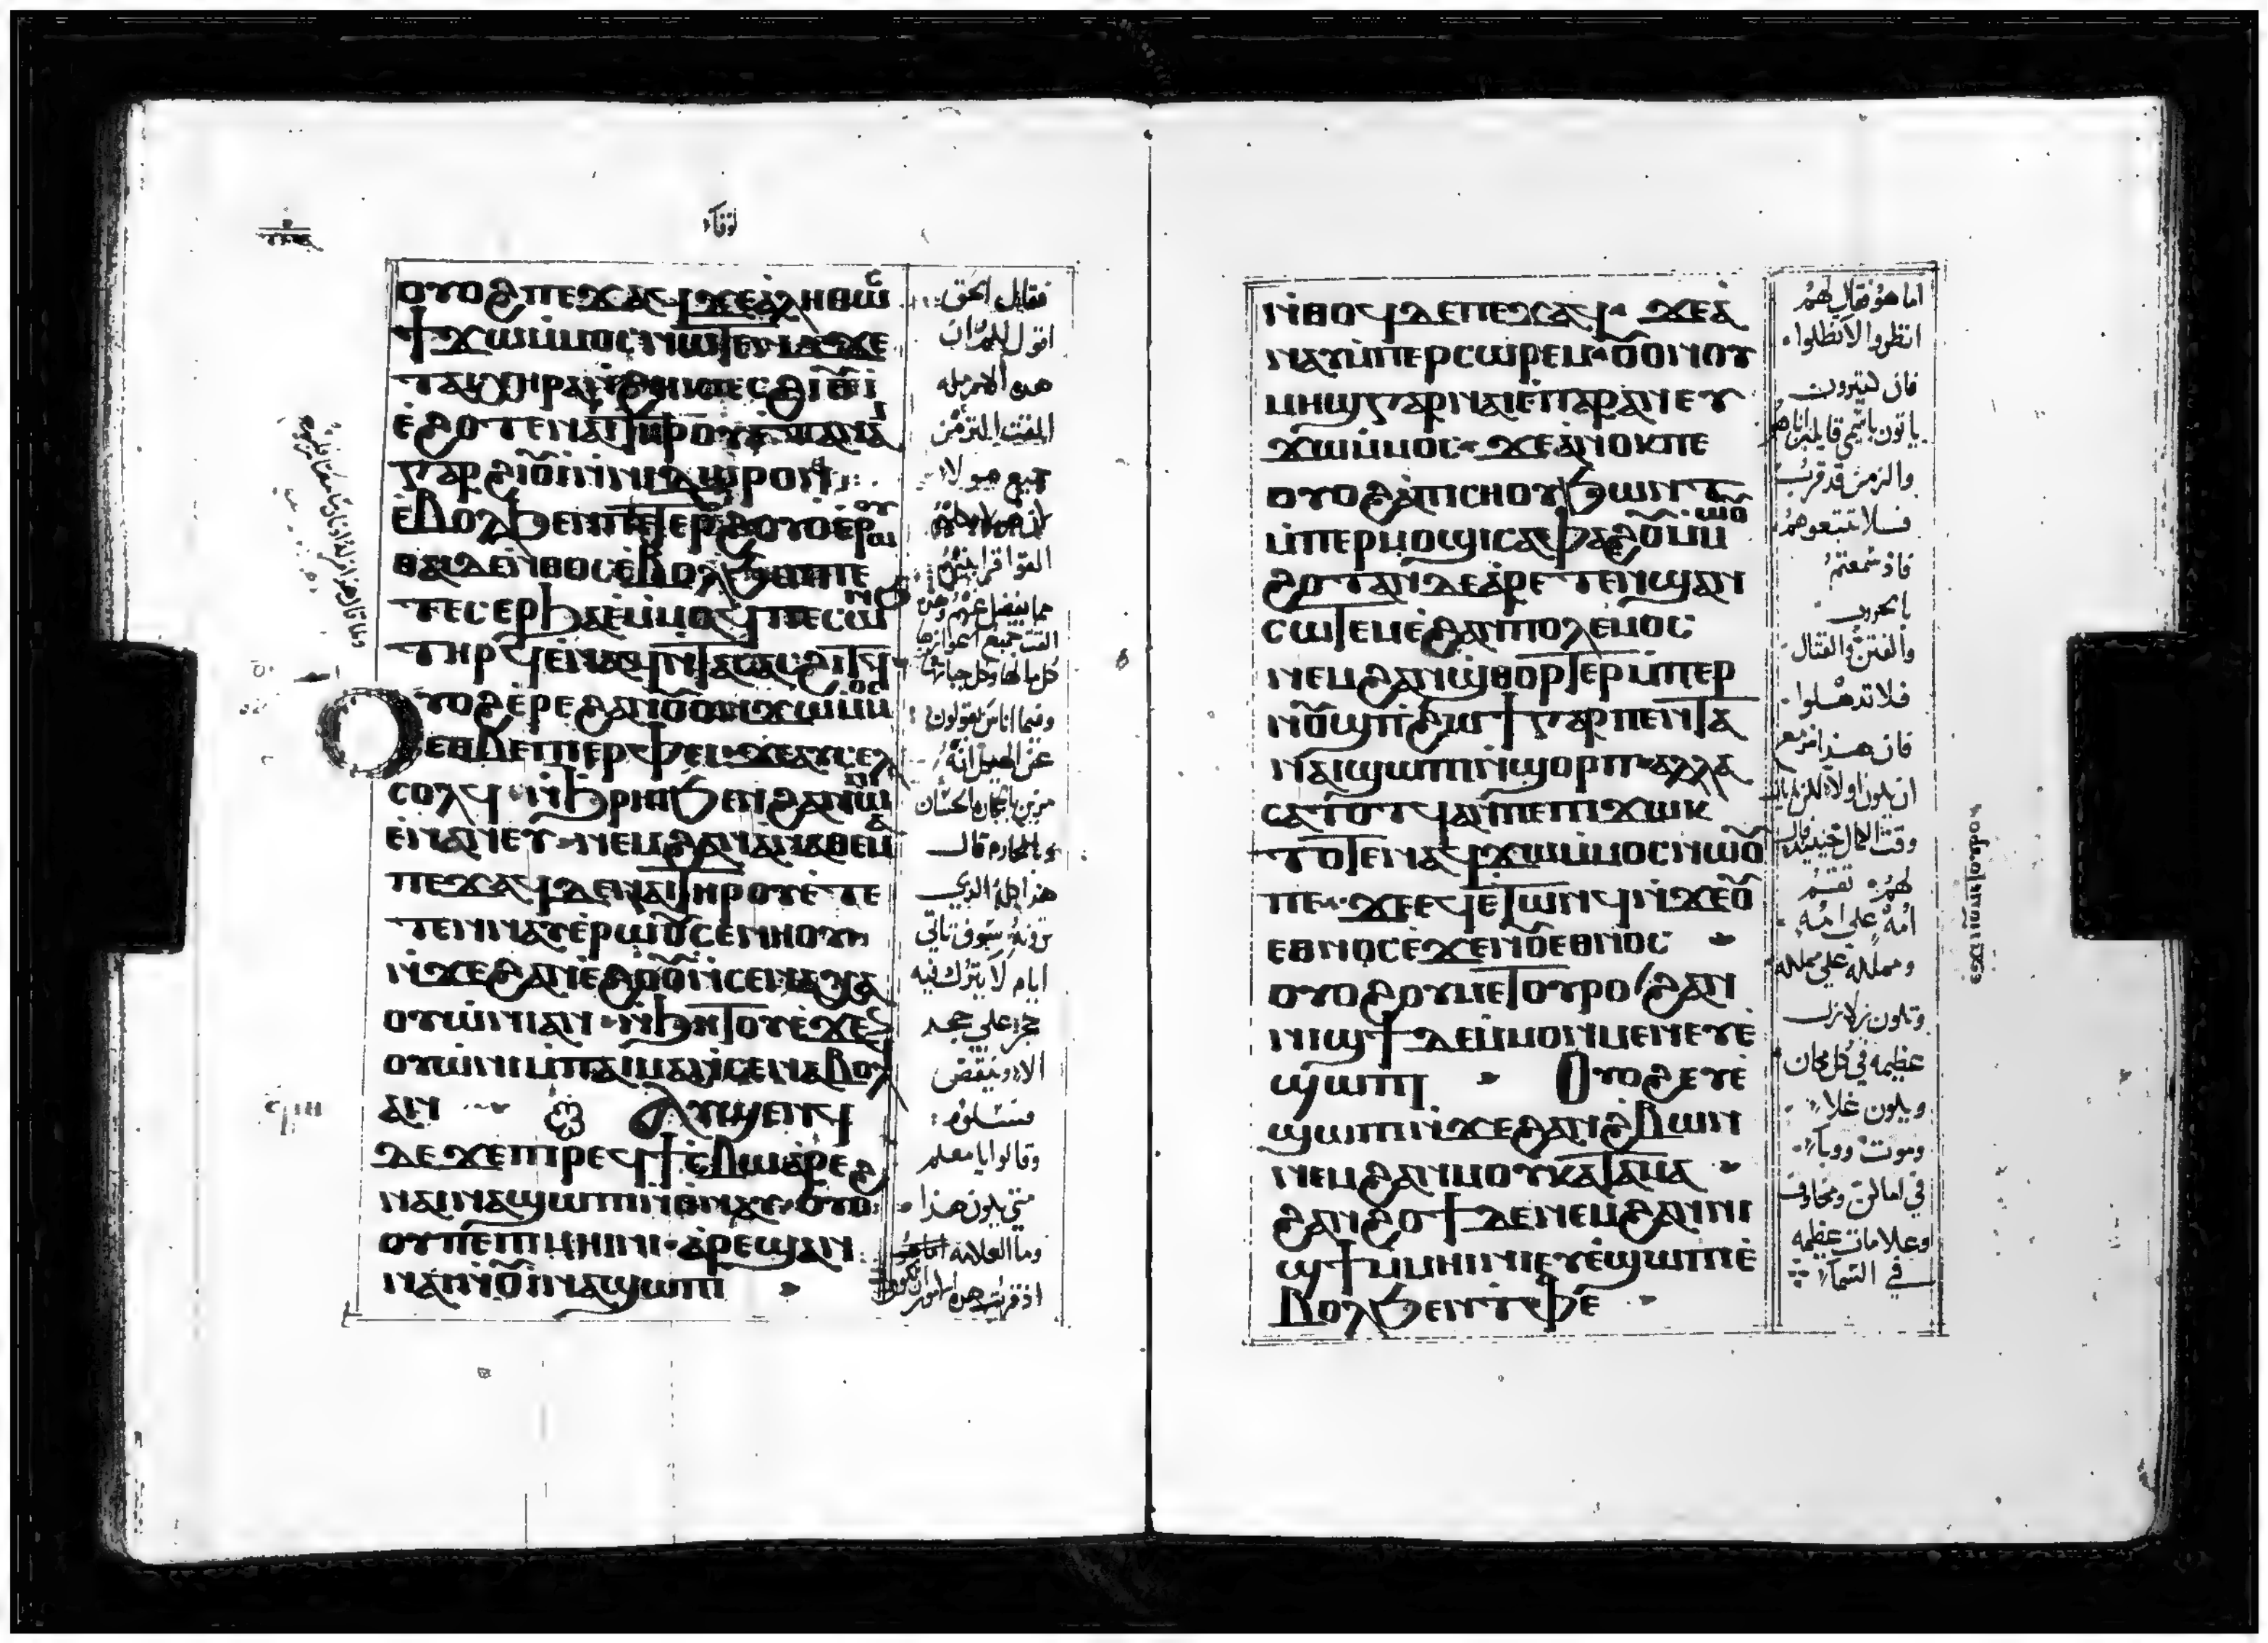 لوقا
ⲟⲩⲟϩ ⲡⲉϫⲁϥ ϫⲉ ⲁⲗⲏⲑⲱⲥ
ϯϫⲱ ⲙⲙⲟⲥ ⲛⲱⲧⲉⲛ ϫⲉ
ⲧⲁⲓⲭⲏⲣⲁ ⲛϩⲏⲕⲓ ⲁⲥϩⲓⲟⲩⲓ
ⲉϩⲟⲧⲉ ⲛⲁⲓ ⲧⲏⲣⲟⲩ
ⲅⲁⲣ ϩⲓⲟⲩⲓ ⲛⲛⲓⲇⲱⲣⲟⲛ
ⲉⲃⲟⲗϧⲉⲛ ⲡⲉⲧⲉⲣϩⲟⲩⲟ ⲉⲣⲱⲟⲩ
ⲑⲁⲓ ⲇⲉ ⲛⲑⲟⲥ ⲉⲃⲟⲗϧⲉⲛ ⲡⲉ
ⲧⲉⲥⲉⲣϧⲁⲉ ⲙⲙⲟϥ ⲡⲉⲥⲱⲛϧ
ⲧⲏⲣϥ ⲉⲛⲁϥⲛⲧⲁⲥ ⲁⲥϩⲓⲧϥ
ⲟⲩⲟϩ ⲉⲣⲉ ϩⲁⲛⲟⲩⲟⲛ ϫⲱ ⲙⲙⲟⲥ
ⲉⲑⲃⲉ ⲡⲓⲉⲣⲫⲉⲓ ϫⲉ ⲁⲩⲥⲉⲗ
ⲥⲱⲗϥ ⲛϧⲣⲏⲓ ϧⲉⲛ ϩⲁⲛⲱⲛⲓ
ⲉⲛⲁⲛⲉⲩ ⲛⲉⲙ ϩⲁⲛⲁⲛⲁⲑⲉⲙⲁ
ⲡⲉϫⲁϥ ϫⲉ ⲛⲁⲓ ⲧⲏⲣⲟⲩ ⲉⲧⲉ
ⲧⲉⲛⲛⲁⲩ ⲉⲣⲱⲟⲩ ⲥⲉⲛⲏⲟⲩ
ⲛϫⲉ ϩⲁⲛⲉϩⲟⲟⲩ ⲛⲥⲉⲛⲁⲭⲁ
ⲟⲩⲱⲛⲓ ⲁⲛ ⲛϧⲏⲧⲟⲩ ⲉϫⲉⲛ
ⲟⲩⲱⲛⲓ ⲙⲡⲁⲓⲙⲁ ⲛⲥⲉⲛⲁⲃⲟⲗϥ
ⲁⲛ ⲁⲩϣⲉⲛϥ
ⲇⲉ ϫⲉ ⲡⲓⲣⲉϥϯⲥⲃⲱ ⲁⲣⲉ
ⲛⲁⲓ ⲛⲁϣⲱⲡⲓ ⲛⲑⲛⲁⲩ ⲟⲩⲟϩ
ⲟⲩ ⲡⲉ ⲡⲓⲙⲏⲓⲛⲓ ⲁⲣⲉϣⲁⲛ
ⲛⲁⲓ ⲛⲟⲩ ⲛⲁϣⲱⲡⲓ
فقال الحق
اقول لكم ان
هذه الارمله
جميع هولاء
القوا قرابينهم
وفيما اناس يقولون
عن الهيكل انه
مزين بالحجاره الحسان
والمحارم قال
هذا كله الذي
ترونه سوف تاتي
ايام لا يترك فيه
حجر على حجر
الا وينقض
فسئلوه
وقالوا يا معلم
متى يكون هذا
وما العلامه
ⲛⲑⲟϥ ⲇⲉ ⲡⲉϫⲁϥ ϫⲉ ⲁ
ⲛⲁⲩ ⲙⲡⲉⲣⲥⲱⲣⲉⲙ ⲟⲩⲟⲛ ⲟⲩ
ⲙⲏϣ ⲅⲁⲣ ⲛⲁⲓ ⲉⲡⲁⲣⲁⲛ ⲉⲩ
ϫⲱ ⲙⲙⲟⲥ ϫⲉ ⲁⲛⲟⲕ ⲡⲉ
ⲟⲩⲟϩ ⲁⲡⲓⲥⲏⲟⲩ ϧⲱⲛⲧ
ⲙⲡⲉⲣⲙⲟϣⲓ ⲥⲁⲫⲁϩⲟⲩ ⲙⲙⲱⲟⲩ
ϩⲟⲧⲁⲛ ⲇⲉ ⲁⲣⲉⲧⲉⲛϣⲁⲛ
ⲥⲱⲧⲉⲙ ⲉϩⲁⲛⲡⲟⲗⲉⲙⲟⲥ
ⲛⲉⲙ ϩⲁⲛϣⲑⲟⲣⲧⲉⲣ ⲙⲡⲉⲣ
ⲛⲟⲩϣⲡ ϩⲱϯ ⲅⲁⲣ ⲡⲉ ⲛⲧⲁ
ⲛⲁⲓ ϣⲱⲡⲓ ⲛϣⲟⲣⲡ ⲁⲗⲗⲁ
ⲥⲁⲧⲟⲧϥ ⲁⲛ ⲡⲉ ⲡⲓϫⲱⲕ
ⲧⲟⲧⲉ ⲛⲁϥϫⲱ ⲙⲙⲟⲥ ⲛⲱⲟⲩ
ⲡⲉ ϫⲉ ⲉϥⲉⲧⲱⲛϥ ⲛϫⲉ ⲟⲩ
ⲉⲑⲛⲟⲥ ⲉϫⲉⲛ ⲟⲩⲉⲑⲛⲟⲥ
ⲟⲩⲟϩ ⲟⲩⲙⲉⲧⲟⲩⲣⲟ ϩⲁⲛ
ⲛⲓϣϯ ⲇⲉ ⲙⲙⲟⲛⲙⲉⲛ ⲉⲩⲉ
ϣⲱⲡⲓ ⲟⲩⲟϩ ⲉⲩⲉ
ϣⲱⲡⲓ ⲛϫⲉ ϩⲁⲛϩⲃⲱⲛ
ⲛⲉⲙ ϩⲁⲛⲙⲟⲩ ⲕⲁⲧⲁ ⲙⲁ
ϩⲁⲛϩⲟϯ ⲇⲉ ⲛⲉⲙ ϩⲁⲛⲛⲓ
ϣϯ ⲙⲙⲏⲓⲛⲓ ⲉⲩⲉϣⲱⲡⲓ ⲉ
ⲃⲟⲗϧⲉⲛ ⲧⲫⲉ
اما هو فقال لهم
انظروا لا تضلوا
فان كثيرون
ياتون باسمي قايلين انا هو
والزمن قد قرب
فلا تتبعوهم
فاذ سمعتم
بالحروب
والفتن والقتال
فلا تدهشوا
لهم تقوم
امه على امه
ومملكه على مملكه
وتكون زلازل
عظيمه في كل مكان
ويكون غلاء
وموت ووباء
في اماكن ومخاوف
وعلامات عظيمه
في السماء